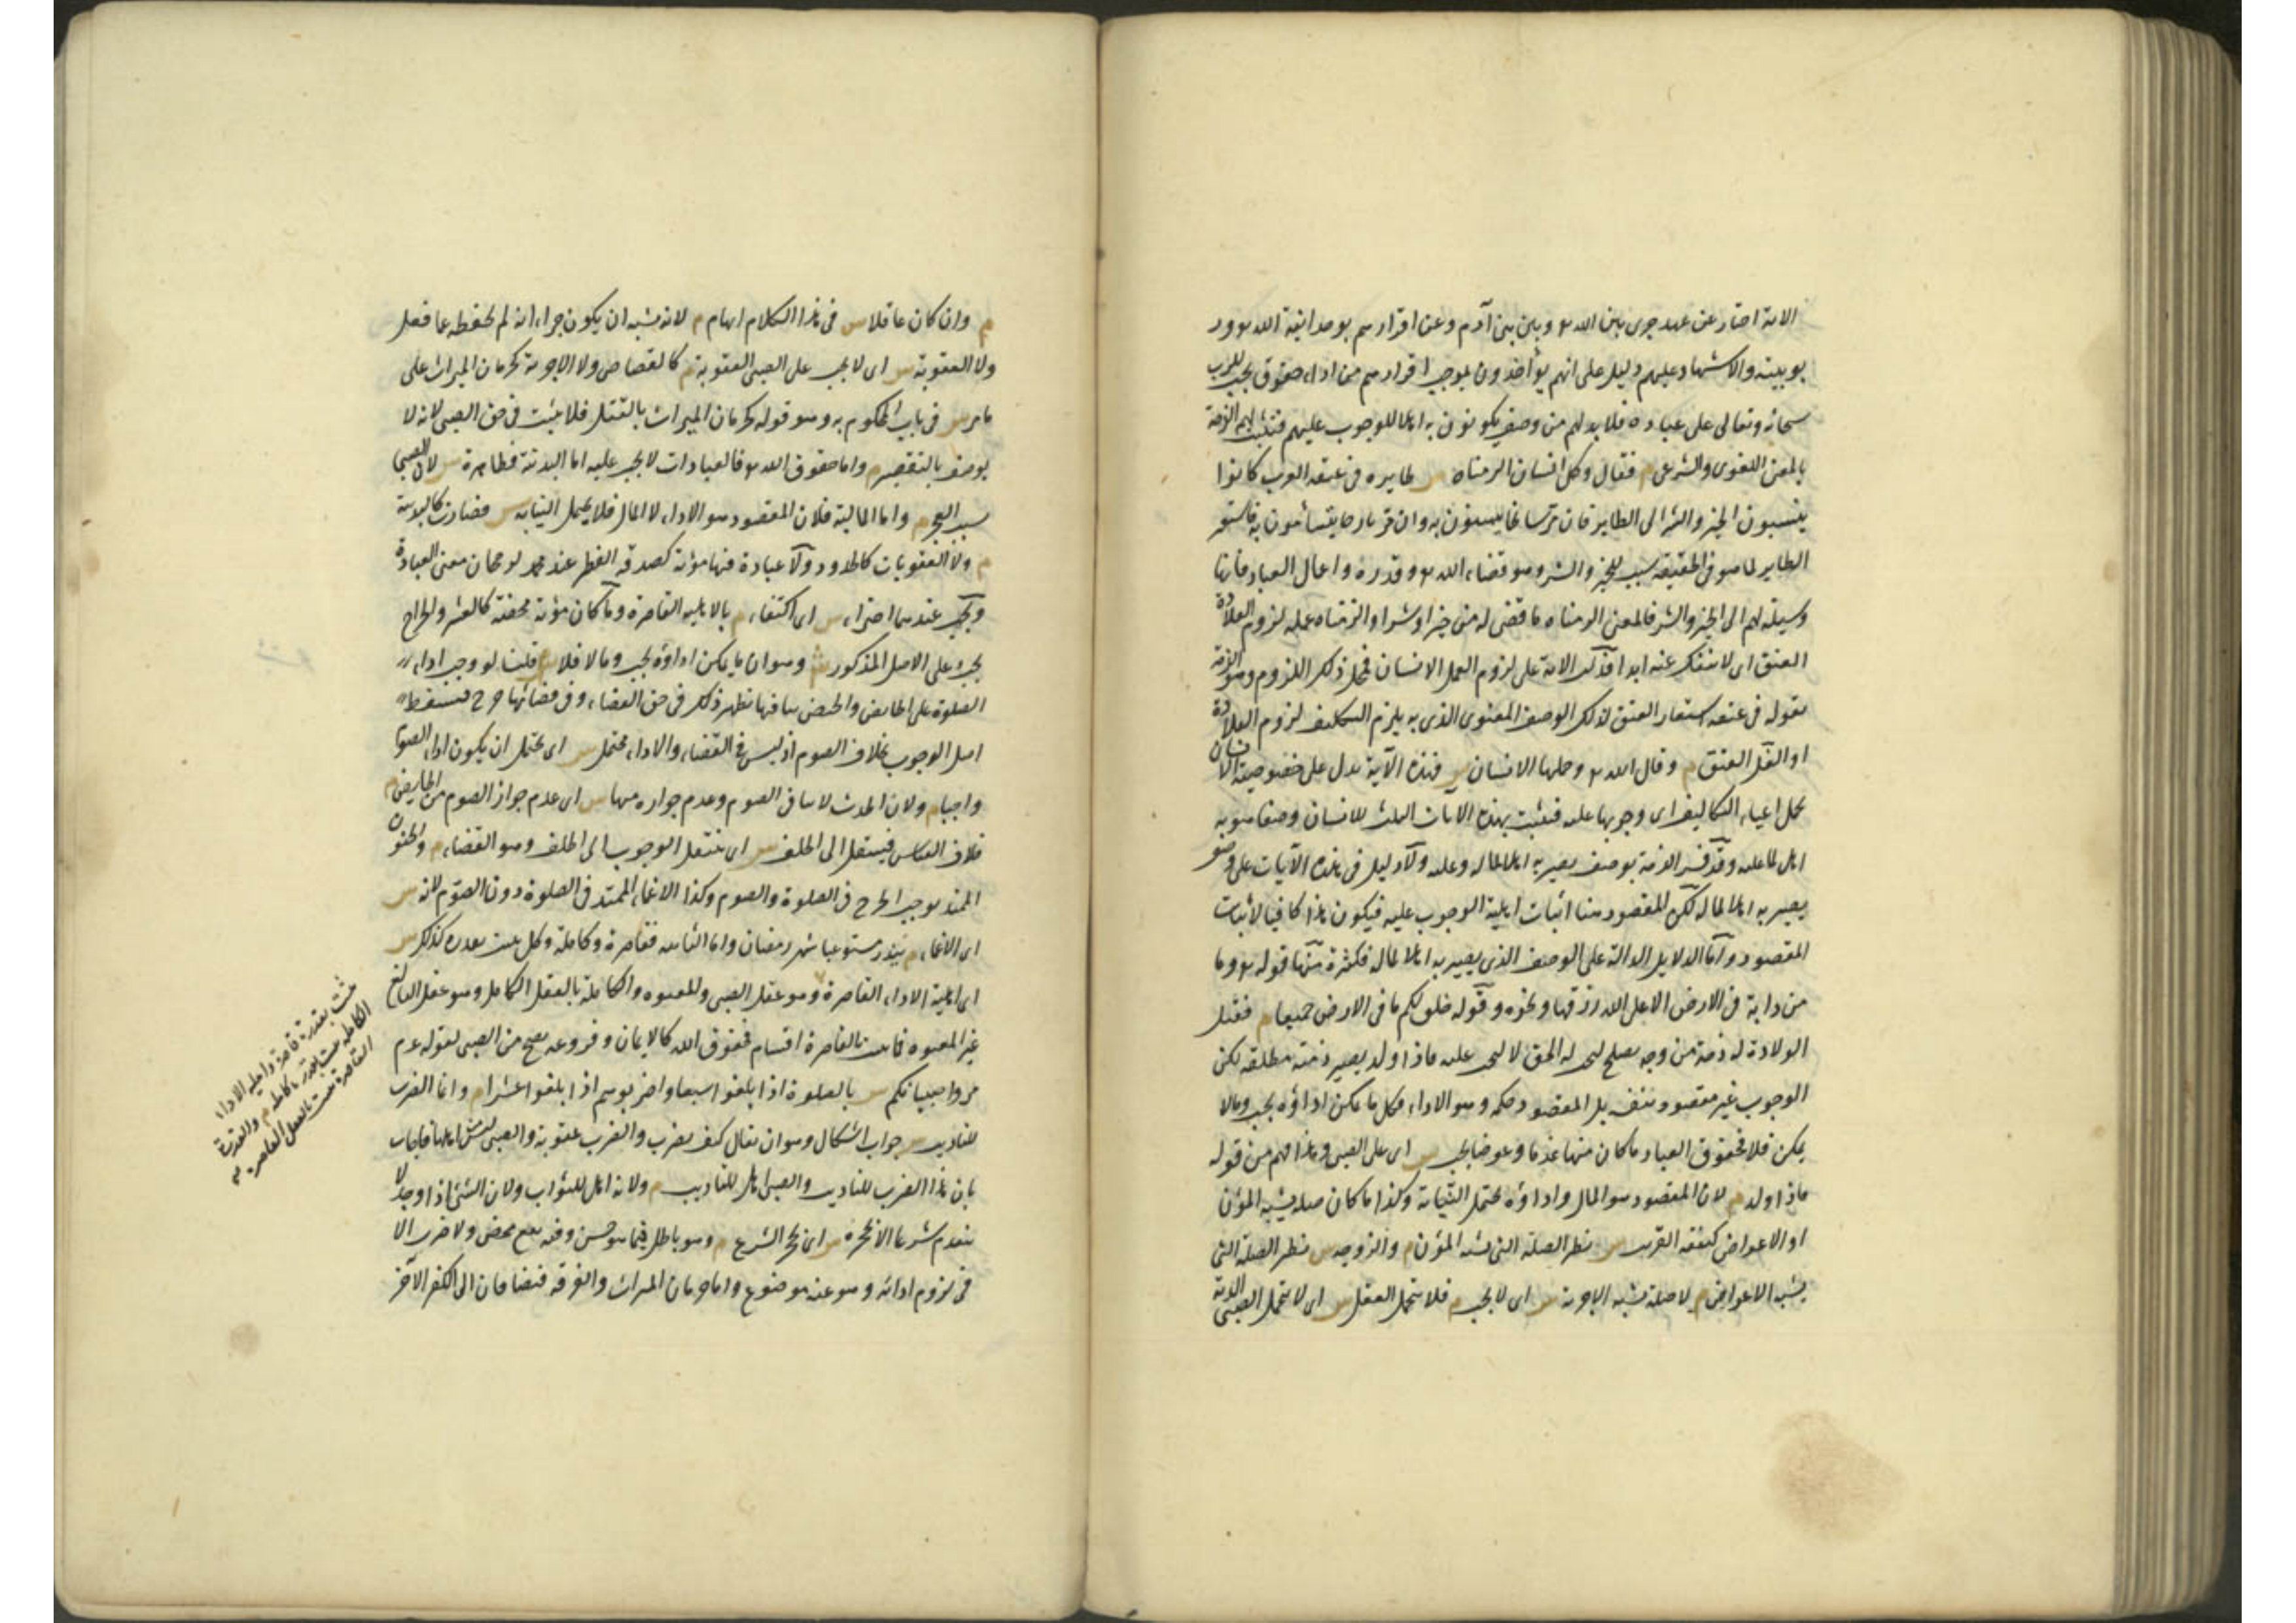 الاية اخبار عن عهد جرى بين الله تع وبين بنى آدم وعن اقرارهم بوحدانية الله تع ور
بوبيته والاشهاد عليهم دليل على انهم يؤاخذون بموجب اقرارهم من اداء حقوق تجب للرب
سبحانه وتعالى على عباده فلا بد لهم من وصف يكونون به اهلا للوجوب عليهم فتثبت لهم الذمة
بالمعنى اللغوى والشرعى م فقال وكل انسان الزمناه س طايره فى عنقه العرب كانوا
ينسبون الخير والشر الى الطاير فان مر سانحا يتيمنون به وان مر بارحا يتشأمون به فاستعير
الطاير لما هو فى الحقيقة سبب للخير والشر وهو قضاء الله تع وقدره واعمال العباد فانها
وسيلة لهم الى الخير والشر فالمعنى الزمناه ما قضى له من خير او شر او الزمناه عمله لزوم القلادة
العنق اى لا ينفك عنه ابدا فدلت الاية على لزوم العمل الانسان فمحل ذلك اللزوم وهو الذمة
بقوله فى عنقه استعار العنق لذلك الوصف المعنوى الذى به يلزم التكليف لزوم القلادة
او الغل العنق م وقال الله تع وحملها الانسان س فهذه الآية تدل على خصوصية الانسان
بحمل اعباء التكاليف اى وجوبها عليه فيثبت بهذه الآيات الثلث للانسان وصفا هو به
اهل لما عليه وقد فسر الذمة بوصف يصير به اهلا لما له وعليه ولا دليل فى هذه الآيات على وصف
يصير به اهلا لما له لكن المقصود هنا اثبات اهلية الوجوب عليه فيكون هذا كافيا لاثبات
المقصود واما الدلايل الدالة على الوصف الذى يصير به اهلا لما له فكثيرة منها قوله تع وما
من دابة فى الارض الا على الله رزقها ونحوه وقوله خلق لكم ما فى الارض جميعا م فقبل
الولادة له ذمة من وجه يصلح ليجب له الحق لا ليجب عليه فاذا ولد يصير ذمته مطلقة لكن
الوجوب غير مقصود بنفسه بل المقصود حكمه وهو الاداء فكل ما يمكن اداؤه يجب وما لا
يمكن فلا فحقوق العباد ما كان منها غرما وعوضا يجب س اى على الصبى وهذا فهم من قوله
فاذا ولد م لان المقصود هو المال واداؤه يحتمل النيابة وكذا ما كان صلة يشبه المؤن
او الاعواض كنفقة القريب س نظير الصلة التى تشبه المؤن م والزوجة س نظير الصلة التى
يشبه الاعواض م لا صلة تشبه الاجزية س اى لا يجب م فلا يتحمل العقل س اى لا يتحمل الصبى الدية
م وان كان عاقلا س فى هذا الكلام ايهام م لانه يشبه ان يكون جزاء انه لم يحفظه عما فعل
ولا العقوبة س اى لا يجب على الصبى العقوبة م كالقصاص ولا الاجزية كحرمان الميراث على
ما مر س فى باب المحكوم به وهو قوله كحرمان الميراث بالقتل فلا يثبت فى حق الصبى لانه لا
يوصف بالتقصير م واما حقوق الله تع فالعبادات لا يجب عليه اما البدنية فظاهرة س لان الصبى
سبب العجز م واما المالية فلان المقصود هو الاداء لا المال فلا يحتمل النيابة س فصارت كالبدنية
م ولا العقوبات كالحدود ولا عبادة فيها مؤنة كصدقة الفطر عند محمد لرجحان معنى العبادة
ويجب عندهما اجتزاء س اى اكتفاء م بالاهلية القاصرة وما كان مؤنة محضة كالعشر والخراج
يجب وعلى الاصل المذكور ش وهو ان ما يمكن اداؤه يجب وما لا فلا م قلنا لو وجب اداء
الصلوة على الحايض والحيض ينافيها يظهر ذلك فى حق القضاء وفى قضائها حرج فيسقط
اصل الوجوب بخلاف الصوم اذ ليس فى القضاء والاداء محتمل س اى يحتمل ان يكون اداء الصوم
واجبا م ولان الحدث لا ينافى الصوم وعدم جوازه منها س اى عدم جواز الصوم من الحايض م
خلاف القياس فينتقل الى الخلف س اى ينتقل الوجوب الى الخلف وهو القضاء م والجنون
الممتد يوجب الحرج فى الصلوة والصوم وكذا الاغماء الممتد فى الصلوة دون الصوم لانه س
اى الاغماء م يندر مستوعبا شهر رمضان واما الثانية فقاصرة وكاملة وكل يثبت بقدرة كذلك س
اى اهلية الاداء القاصرة وهو عقل الصبى والمعتوه والكاملة بالعقل الكامل وهو عقل البالغ
غير المعتوه فما يثبت بالقاصرة اقسام فحقوق الله كالايمان وفروعه يصح من الصبى لقوله عم
مروا صبيانكم س بالصلوة اذا بلغوا سبعا واضربوهم اذا بلغوا عشرا م وانما الضرب
للتاديب س جواب اشكال وهو ان يقال كيف يضرب والضرب عقوبة والصبى ليس اهلها فاجاب
بان هذا الضرب للتاديب والصبى اهل للتاديب م ولانه اهل للثواب ولان الشئ اذا وجد لا
ينعدم شرعا الا بحجره س اى بحجر الشرع م وهو باطل فيما هو حسن وفيه نفع محض ولا ضرر الا
فى لزوم ادائه وهو عنه موضوع واما حرمان الميراث والفرقة فيضافان الى الكفر الآخر
يثبت بقدرة قاصرة واهلية الاداء
الكاملة يثبت بقدرة كاملة م والقدرة
القاصرة يثبت بالعقل القاصر